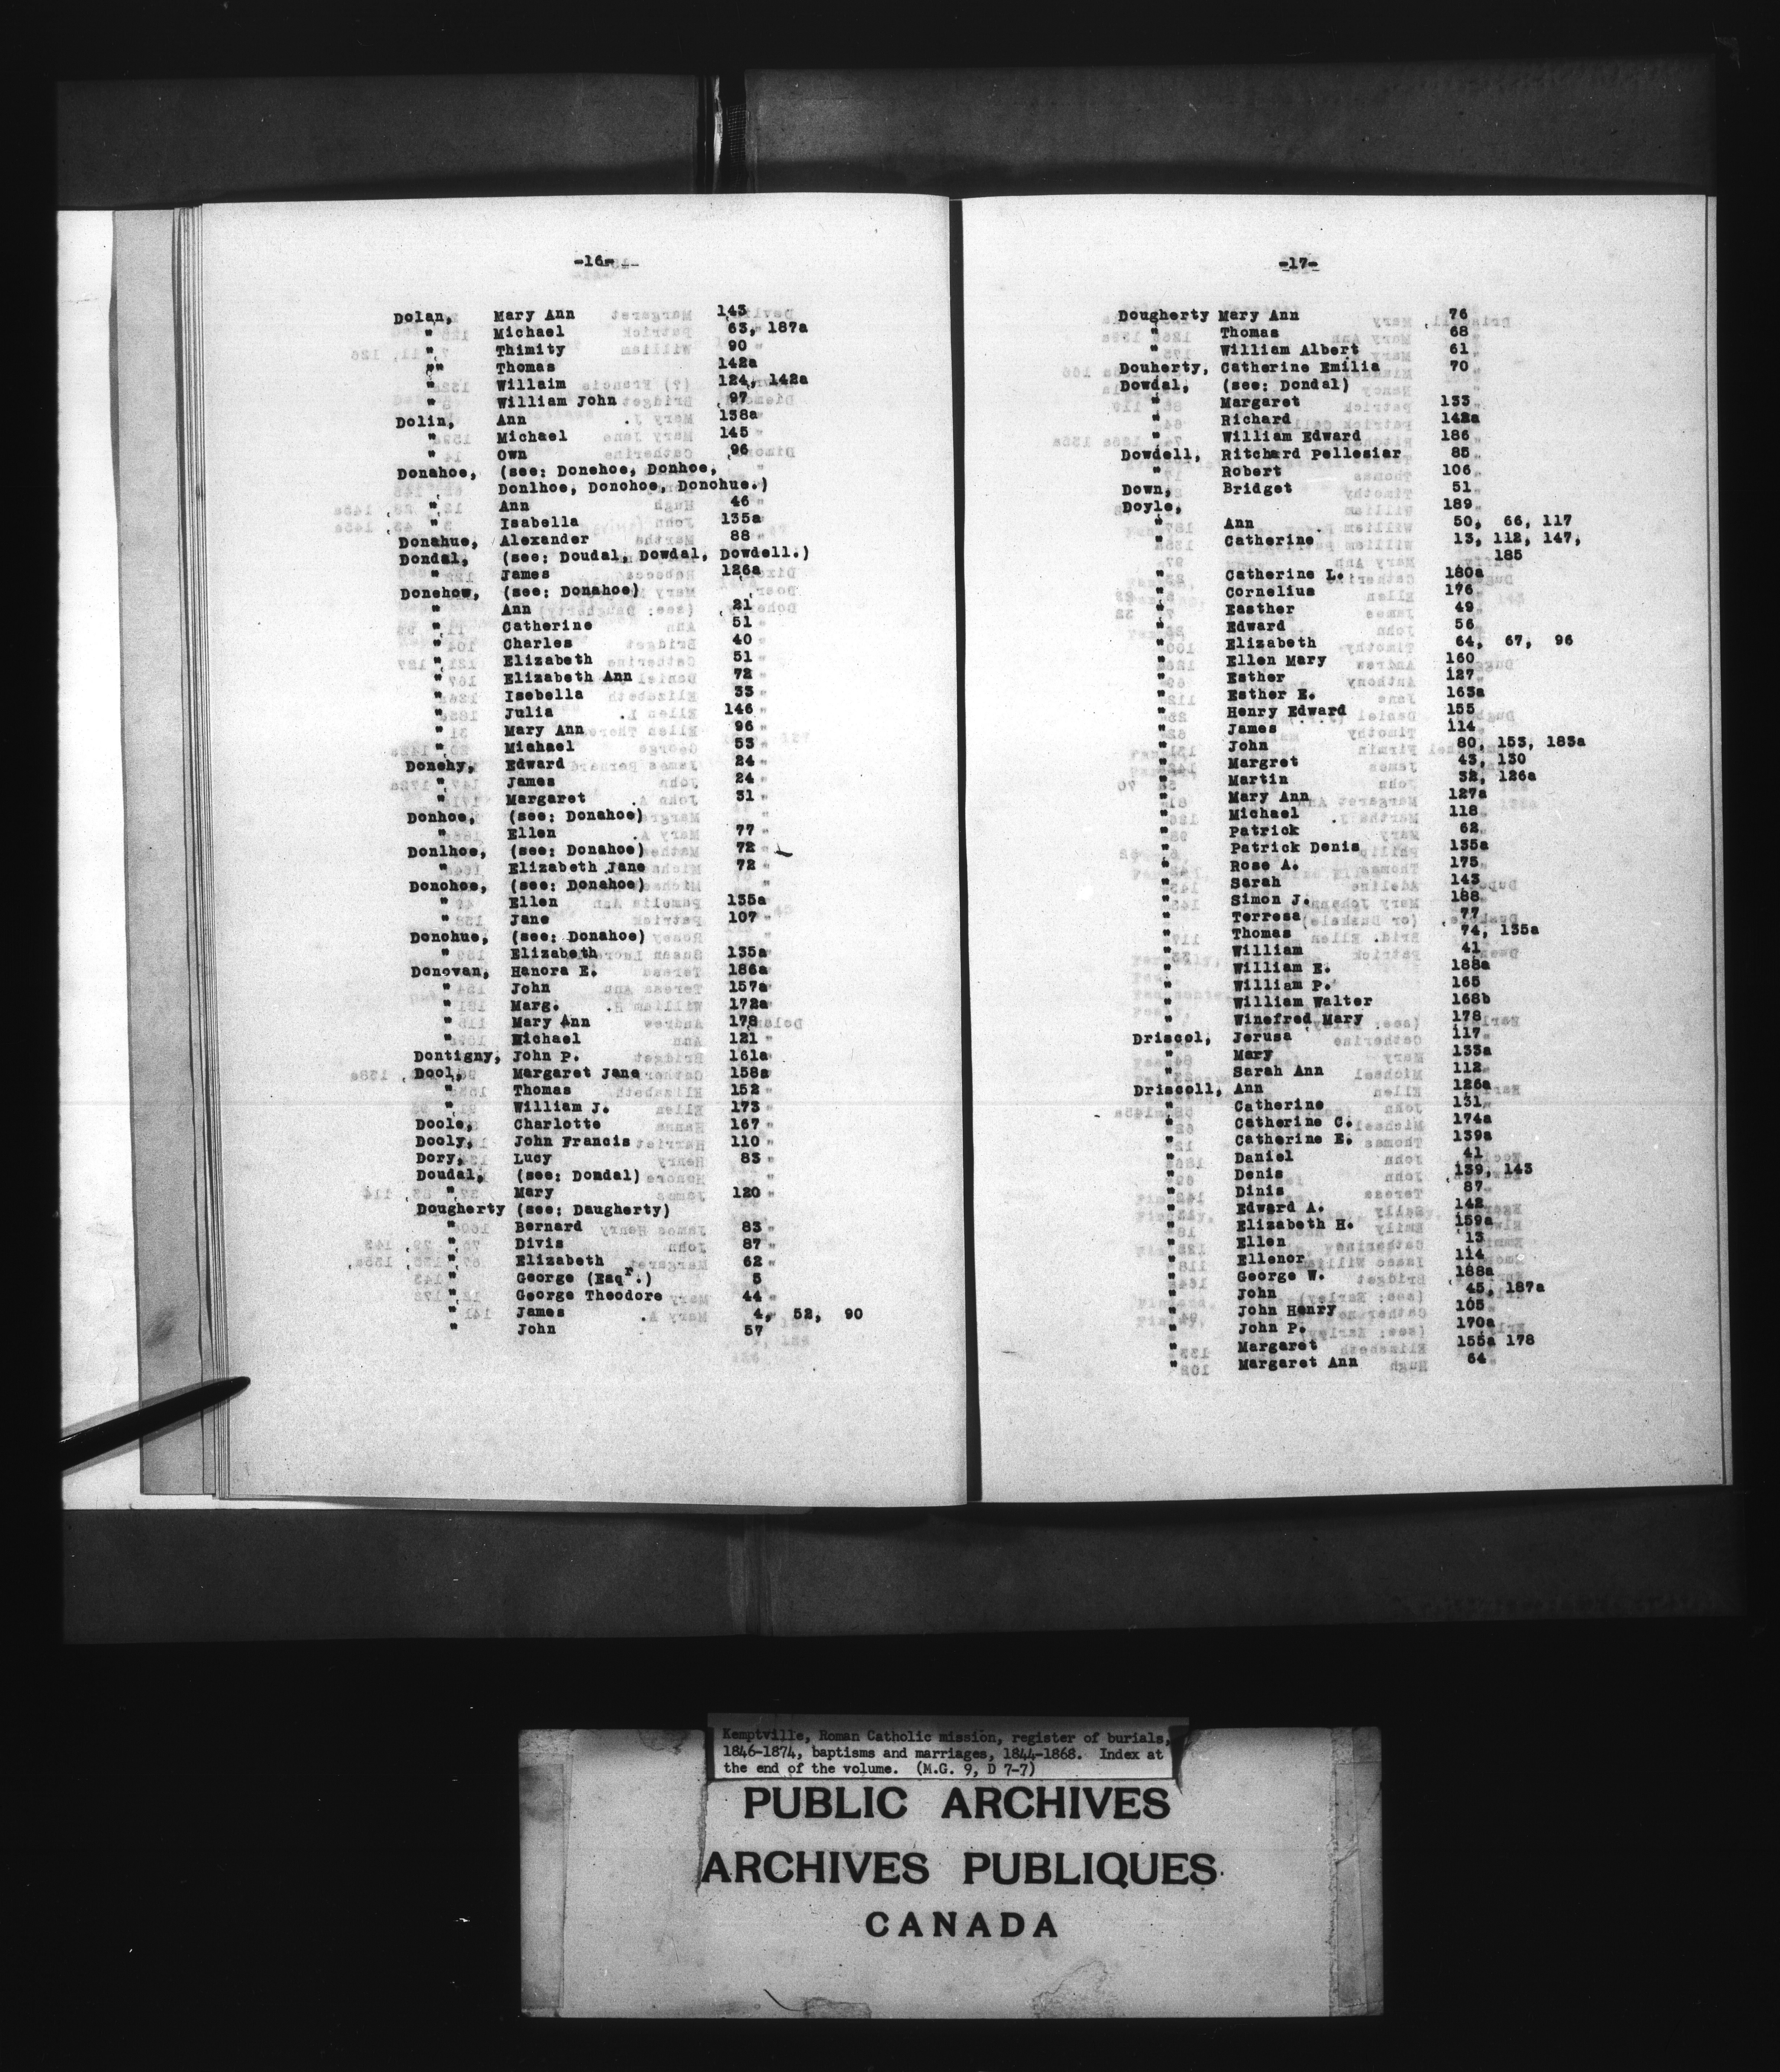 -16-
Dolan, Mary Ann 143
" Michael 63, 187a
" Thimity 90
"" Thomas 142a
" Willaim 124, 142a
" William John 97
Dolin, Ann 138a
" Michael 145
" Own 96
Donahoe, (see: Donehoe, Donhoe,
Donlhoe, Donohoe, Donohue.)
" Ann 46
" Isabella 135a
Donahue, Alexander 88
Dondal, (see: Doudal, Dowdal, Dowdell.)
" James 126a
Donehow, (see: Donahoe)
" Ann 21
" Catherine 51
" Charles 40
" Elizabeth 51
" Elizabeth Ann 72
" Isebella 33
" Julia 146
" Mary Ann 96
" Michael 53
Donehy, Edward 24
" James 24
" Margaret 31
Donhoe, (see: Donahoe)
" Ellen 77
Donlhoe, (see: Donahoe) 72
" Elizabeth Jane 72
Donohoe, (see: Donahoe)
" Ellen 135a
" Jane 107
Donohue, (see: Donahoe)
" Elizabeth 135a
Donovan, Hanora E. 186a
" John 157a
" Marg. 172a
" Mary Ann 178
" Michael 121
Dontigny, John P. 161a
Dool, Margaret Jane 158a
" Thomas 152
" William J. 173
Doole, Charlotte 167
Dooly, John Francis 110
Dory, Lucy 83
Doudal, (see: Dondal)
" Mary 120
Dougherty (see: Daugherty)
" Bernard 83
" Divis 87
" Elizabeth 62
" George (Esqr.) 5
" George Theodore 44
" James 4, 52, 90
" John 57
-17-
Dougherty Mary Ann 76
" Thomas 68
" William Albert 61
Douherty, Catherine Emilia 70
Dowdal, (see: Dondal)
" Margaret 133
" Richard 142a
" William Edward 186
Dowdell, Ritchard Pellesier 85
" Robert 106
Down, Bridget 51
Doyle, 189
" Ann 50, 66, 117
" Catherine 13, 112, 147,
185
" Catherine L. 180a
" Cornelius 176
" Easther 49
" Edward 56
" Elizabeth 64, 67, 96
" Ellen Mary 160
" Esther 127
" Esther E. 163a
" Henry Edward 155
" James 114
" John 80, 153, 183a
" Margret 43, 130
" Martin 32, 126a
" Mary Ann 127a
" Michael 118
" Patrick 62
" Patrick Denis 135a
" Rose A. 175
" Sarah 143
" Simon J. 188
" Terresa 77
" Thomas 74, 135a
" William 41
" William E. 188a
" William P. 165
" William Walter 168b
" Winefred Mary 178
Driscol, Jerusa 117
" Mary 133a
" Sarah Ann 112
Driscoll, Ann 126a
" Catherine 131
" Catherine C. 174a
" Catherine E. 139a
" Daniel 41
" Denis 139, 143
" Dinis 87
" Edward A. 142
" Elizabeth H. 159a
" Ellen 13
" Ellenor 114
" George W. 188a
" John 45, 187a
" John Henry 105
" John P. 170a
" Margaret 155a 178
" Margaret Ann 64
Kemptville, Roman Catholic mission, register of burials,
1846-1874, baptisms and marriages, 1844-1868. Index at
the end of the volume. (M.G. 9, D 7-7)
PUBLIC ARCHIVES
ARCHIVES PUBLIQUES
CANADA